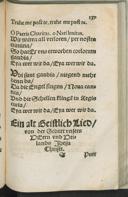 137
Trahe me post te, trahe me post te.
O Patris Charitas, o Nati lenitas,
Wir weren all verloren / per nostra
crimina /
So hat Er vns erworben coelorum
gaudia /
Eya wer wir da / Eya wer wir da.
Vbi sunt gaudia / niegend mehr
denn da /
Da die Engel singen / Noua can-
tica /
Vnd die Schellen klingen in Regis
curia /
Eya wer wir da / Eya wer wir da.
Ein alt Geistlich Lied /
von der Geburt vnsers
HErrn vnd Hei-
landes Jhesu
Christi.
Puer